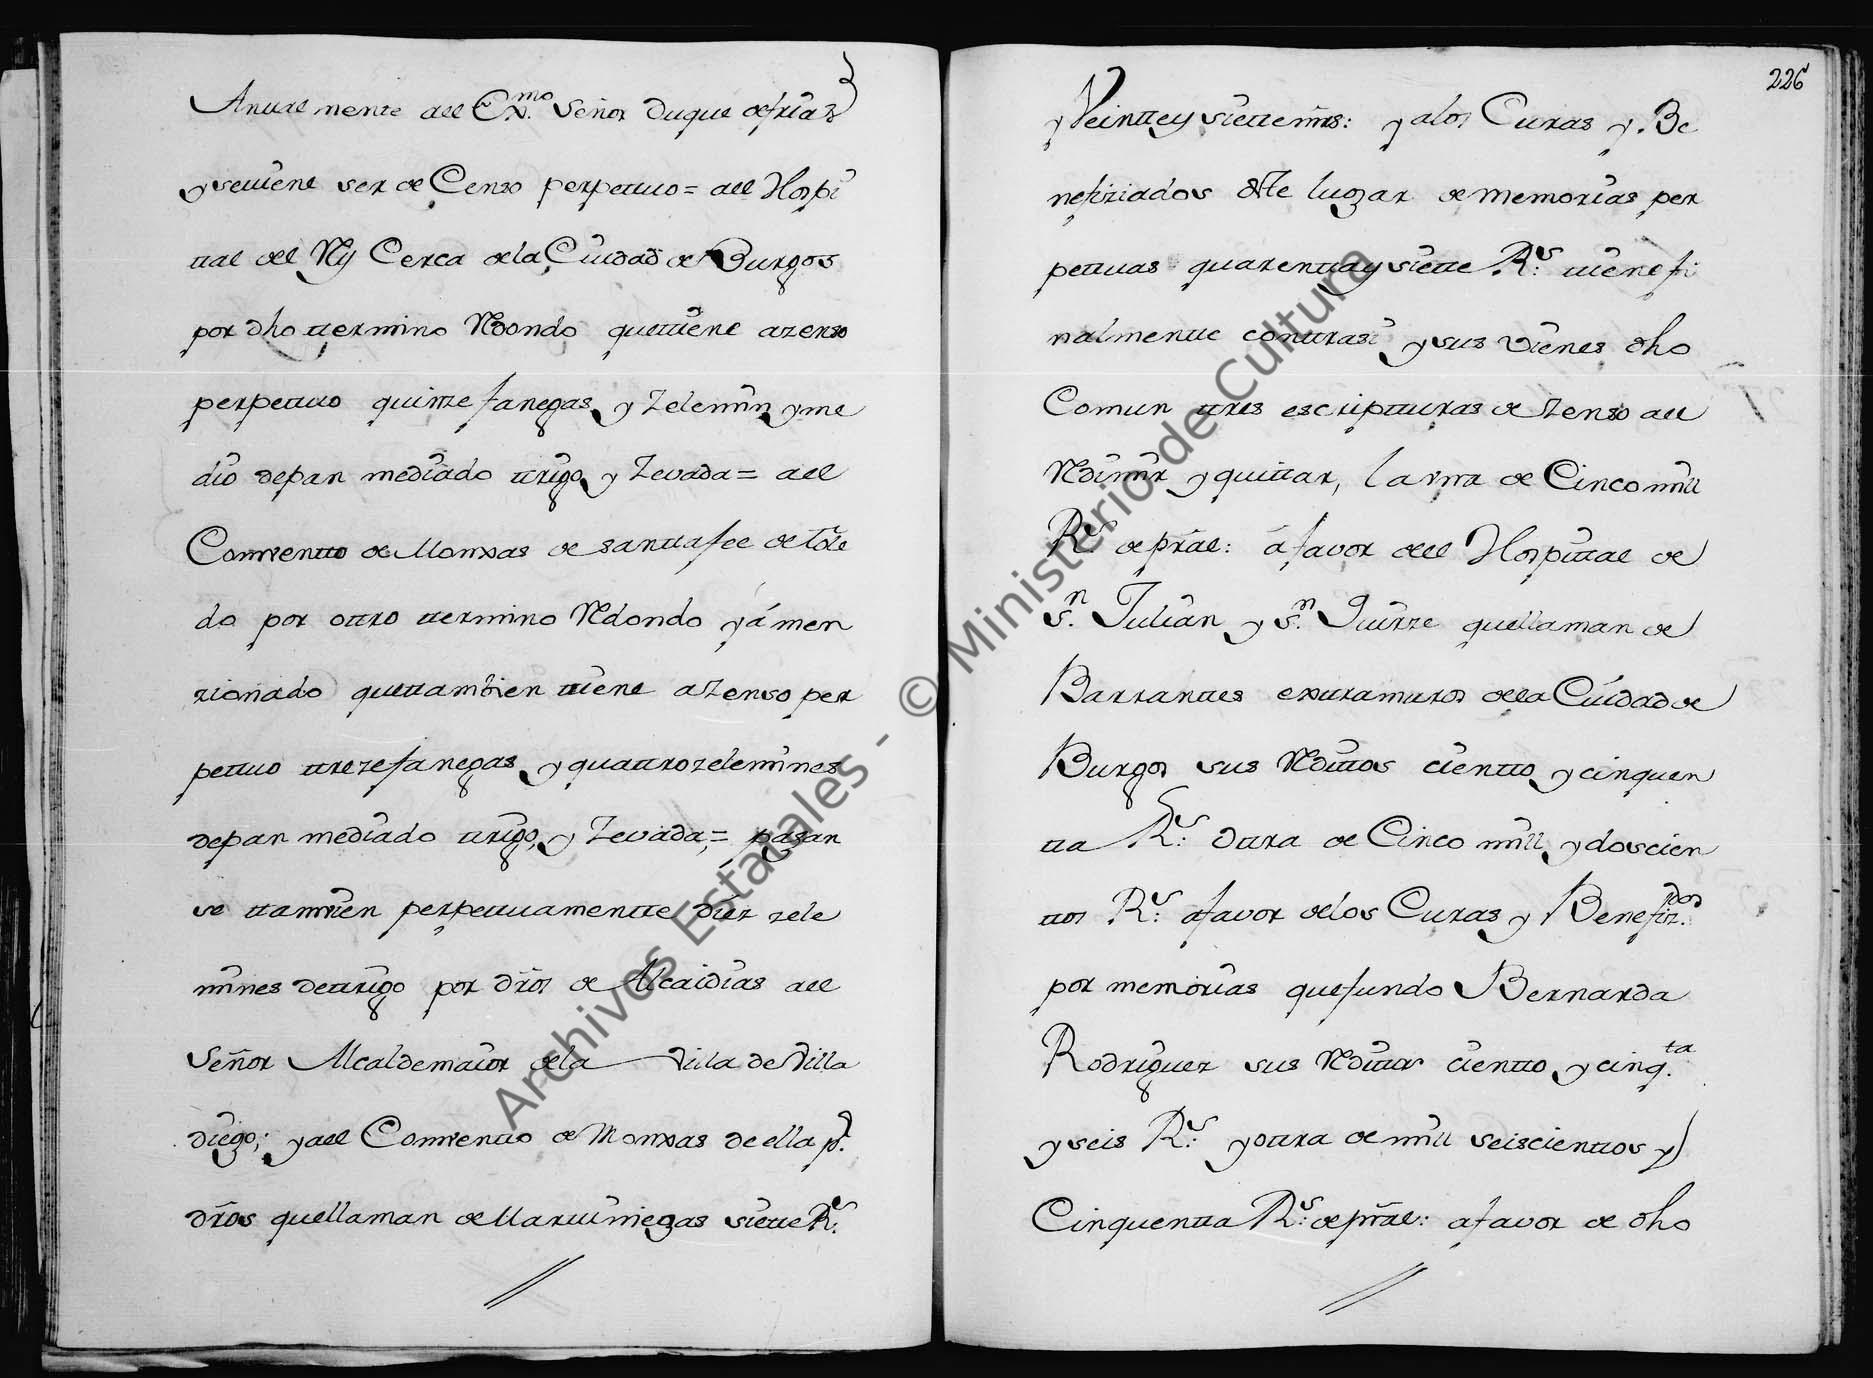 Anualmente all Exmo. Señor Duque de frias
y se tiene ser de Censo perpettuo = all Hospi
ttal del Rey Cerca de la Ciudad de Burgos
por dho ttermino Rdondo que ttiene a zenso
perpettuo quinze fanegas y zelemin y me
dio de pan mediado ttrigo y Zevada = all
Comventto de Monxas de santta fee de tôle
do por ottro ttermino Rdondo yá men
zionado que ttambien ttiene a Zenso per
pettuo ttreze fanegas y quattro zelemines
de pan mediado ttrigo, y Zevada, = pagan
se ttamvien perpettuamentte diez zele
mines de ttrigo por drõs de Alcaidias all
Señor Alcalde maior de la Villa de Villa
diego; y all Comventto de Monxas de ella pr.
drõs que llaman de Marttiniegas siette Rs:
226
y Veintte y siette mrs: y a los Curas y Be
nefiziados deste lugar de memorias per
pettuas quarentta y siette Rs: ttiene fi
nalmentte conttra si y sus vienes dho
Comun ttres escriptturas de Zenso all
Rdimir y quittar, la vna de Cinco mill
Rs de prãl: á favor dell Hospittal de
Sn. Julian y Sn. Quirze que llaman de
Barranttes exttramuros de la Ciudad de
Burgos sus Rdittos cientto y cinquen
tta Rs: Ottra de Cinco mill y doscien
ttos Rs: a favor de los Curas y Benefizdos
por memorias que fundo Bernarda
Rodriguez sus Rdittos cientto y cinqta
y seis Rs: y ottra de mill seiscienttos y
Cinquentta Rs: de prãl: a favor de dho
Archivos Estatales - © Ministerio de Cultura